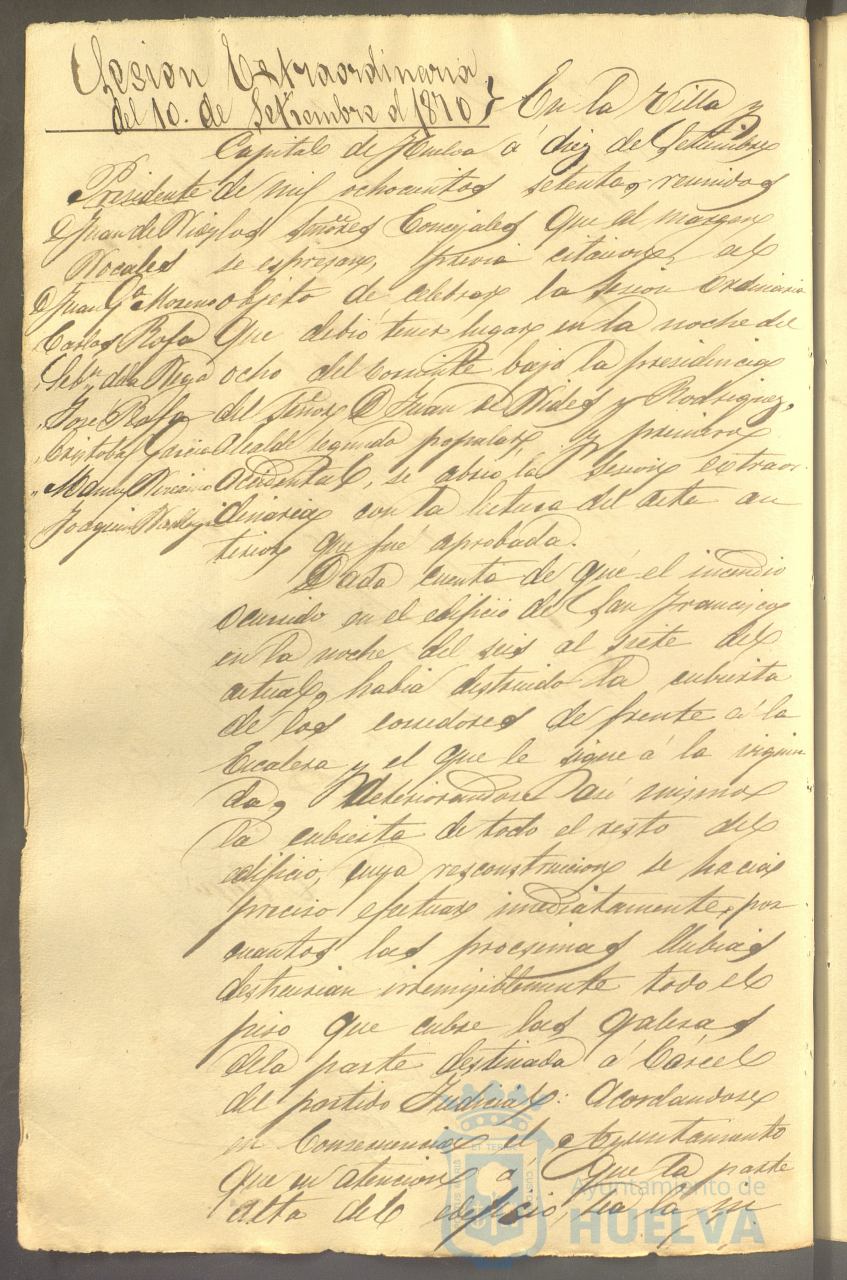 Sesion Extraordinaria
del 10. de Setiembre d 1870 } En la Villa y
Capital de Huelva á diez de Setiembre
Presidente
de mil ochocientos setenta, reunidos
D Juan de
los Señores Concejales que al margen
Nocales
se espresan, previa citacion, al
D Juan Gª Moreno
objeto de celebrar la sesion ordinaria
Carlos Rofa
que debió tener lugar en la noche del
Sebn dela
ocho del corriente bajo la presidencia
José Rofa
del Señor D Juan de y Rodriguez,
Cristobal Garcia
Alcalde segundo popular, y primero
Manuel
accidental, se abrió la sesion extraor
Joaquin
dinaria con la lectura del acta an
terior que fué aprobada.
Dada cuenta de que el incendio
ocurrido en el edificio de San Francisco
en la noche del seis al siete del
actual, habia destruido la cubierta
de los corredores de frente á la
Escalera y el que le sigue á la izquier
da, deteriorandose asi mismo
la cubierta de todo el resto del
edificio, cuya resconstruccion se hacia
preciso efectuar imediatamente, por
cuantos las procsimas llubias
destruirian irremisiblemente todo el
piso que cubre las galeras
dela parte destinada á Cárcel
del partido Judicial: Acordandose
en Consecuencia el Ayuntamiento
que en atencion á que la parte
alta del edificio, sea la
Ayuntamiento de
HUELVA